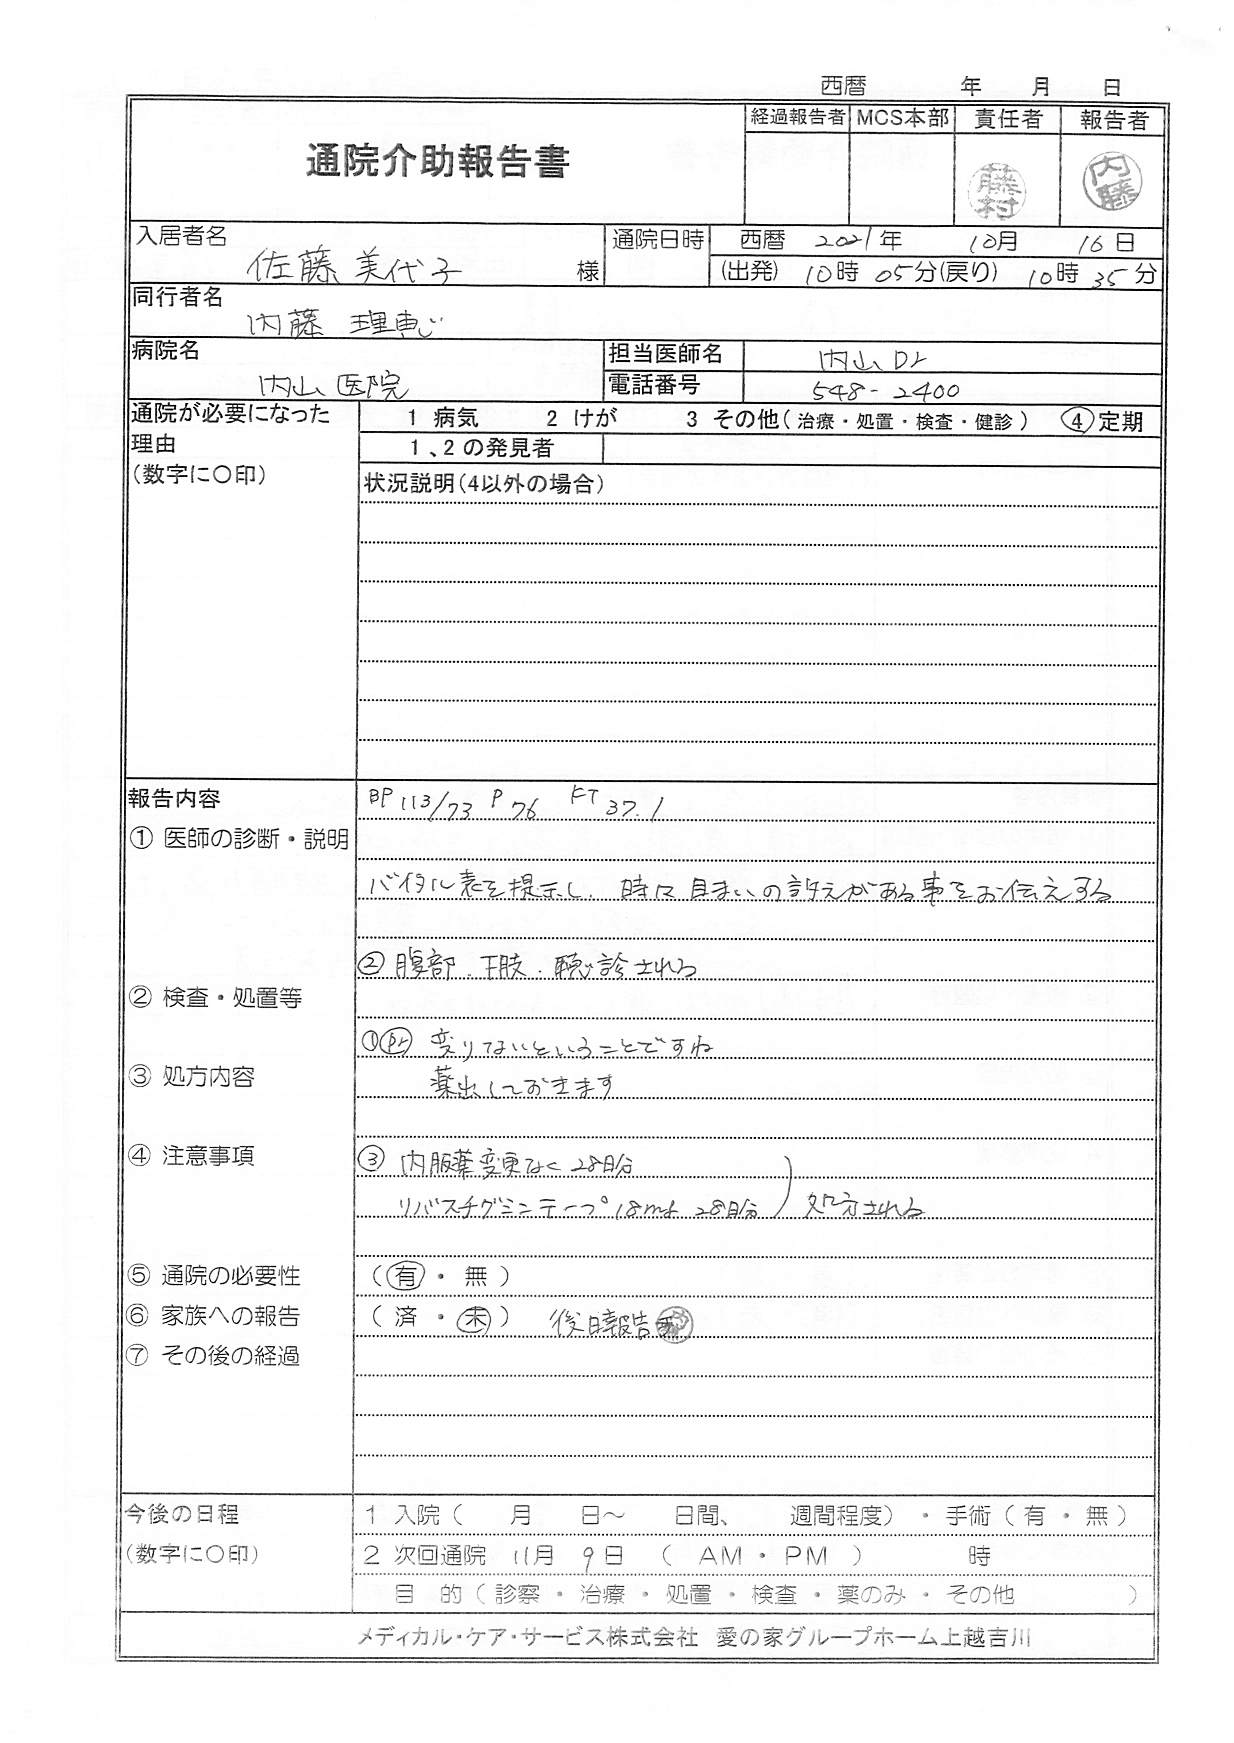 西暦 年 月 日
通院介助報告書
経過報告者 MCS本部 責任者 報告者
藤村 内藤
入居者名 佐藤 美代子 様
通院日時 西暦 2021年 10月 16日
(出発) 10時 05分(戻り) 10時 35分
同行者名 内藤 理恵
病院名 内山医院
担当医師名 内山Dr
電話番号 548-2400
通院が必要になった
理由
(数字に〇印)
1 病気 2 けが 3 その他(治療・処置・検査・健診) ④定期
1、2の発見者
状況説明(4以外の場合)
報告内容
BP 113/73 P 76 KT 37.1
① 医師の診断・説明
バイタル表を提示し、時に目まいの訴えがある事をお伝えする
② 腹部、下肢、聴診される
② 検査・処置等
① Dr 変りないということですね
③ 処方内容
薬出しておきます
④ 注意事項
③ 内服薬変更なく 28日分
リバスチグミンテープ18mg 28日分 処方される
⑤ 通院の必要性 (有・無)
⑥ 家族への報告 (済・未) 後日報告
⑦ その後の経過
今後の日程
(数字に〇印)
1 入院( 月 日〜 日間、 週間程度)・手術(有・無)
2 次回通院 11月 9日 ( AM・PM ) 時
目 的(診察・治療・処置・検査・薬のみ・その他 )
メディカル・ケア・サービス株式会社 愛の家グループホーム上越吉川